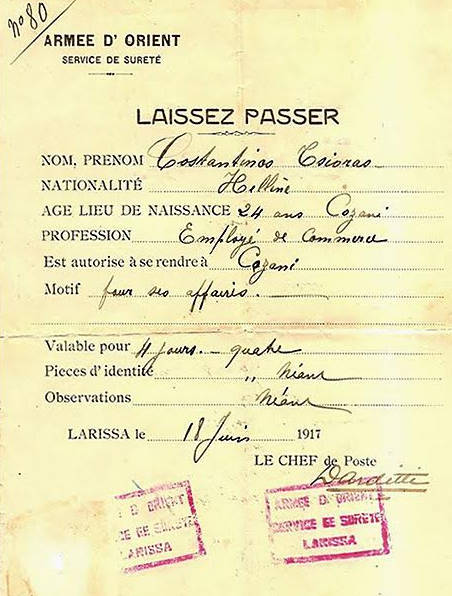 n° 80
ARMEE D' ORIENT
SERVICE DE SURETÉ
LAISSEZ PASSER
NOM, PRENOM Costantinos Tsioras
NATIONALITÉ Hellène
AGE LIEU DE NAISSANCE 24 ans Cozani
PROFESSION Employé de Commerce
Est autorise à se rendre à Cozani
Motif pour ses affaires.
Valable pour 4 jours.- quatre
Pieces d'identité " Néant
Observations Néant
LARISSA le 18 Juin 1917
LE CHEF de Poste
E D' ORIENT
ICE DE SÛRETÉ
LARISSA
ARMÉE D' ORIENT
SERVICE DE SÛRETÉ
LARISSA